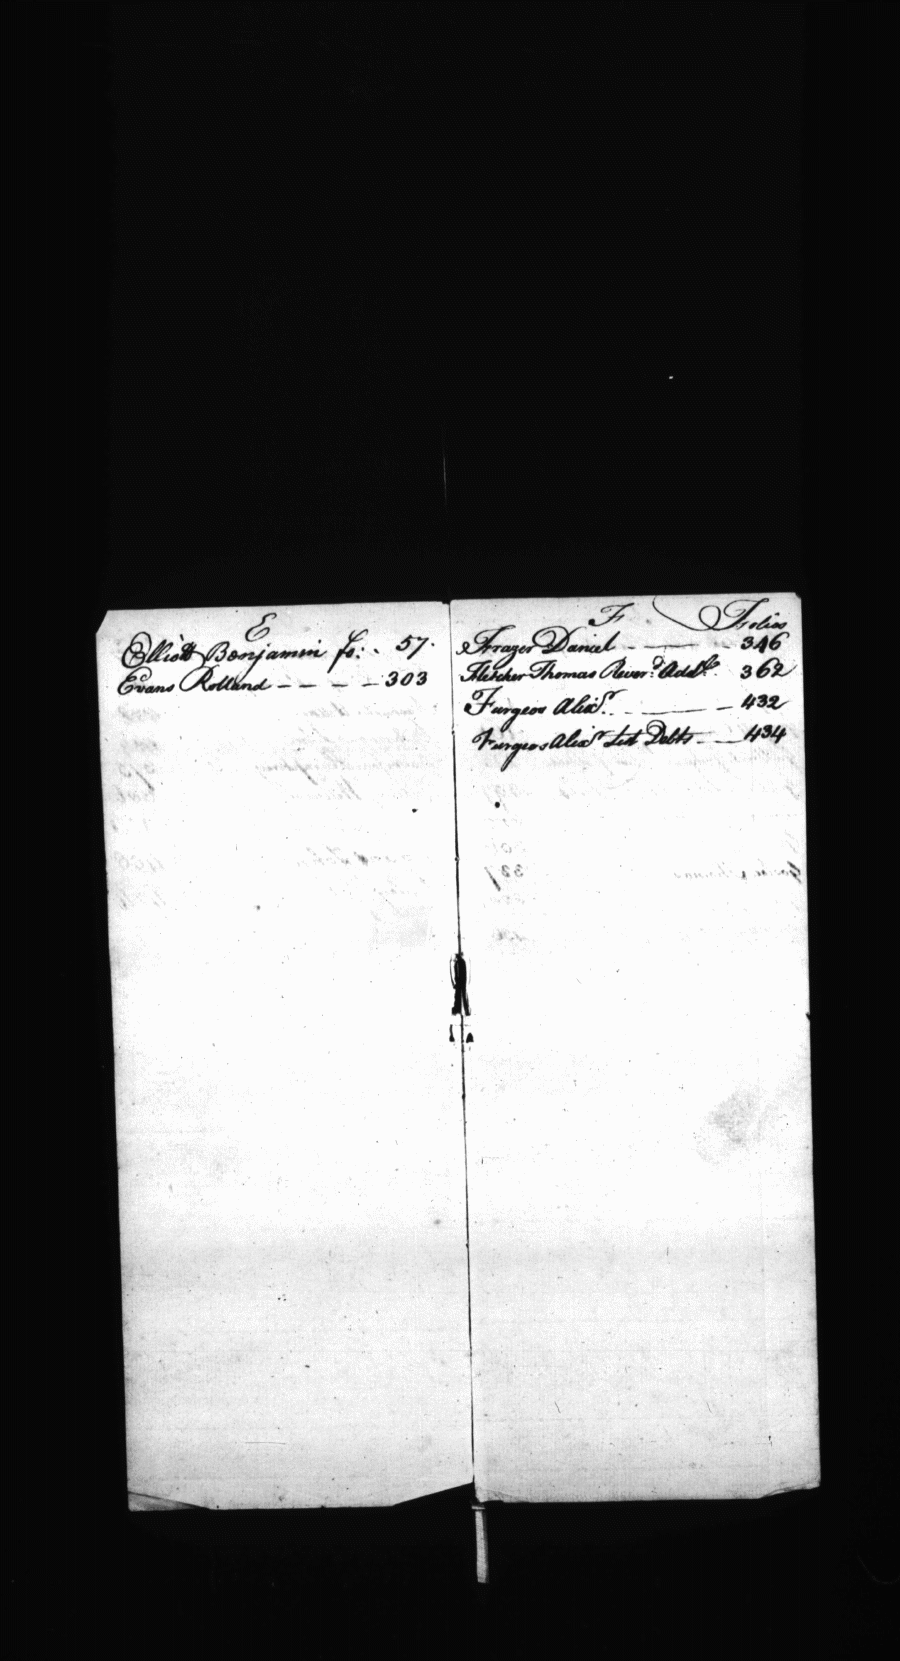 E
Elliott Benjamin fo: - 57.
Evans Rolland - - - - 303
F Folios
Frazer Daniel - - - - 346
Fletcher Thomas Rever.d Add.l 362
Furgeos Alex.r - - - 432
Furgeos Alex.r List Debts - - 434